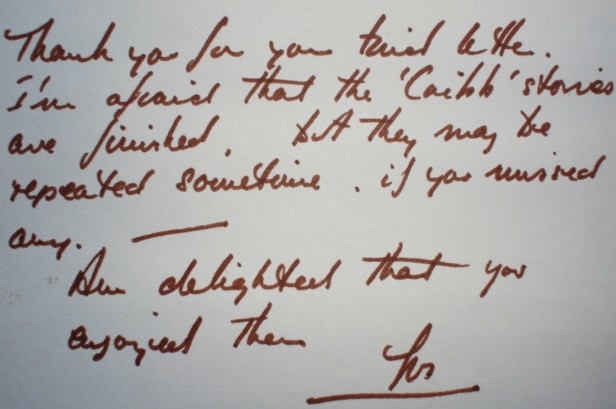 Thank you for your kind letter.
I'm afraid that the 'Cribb' stories
are finished, but they may be
repeated sometime. if you missed
any. —
Am delighted that you
enjoyed them